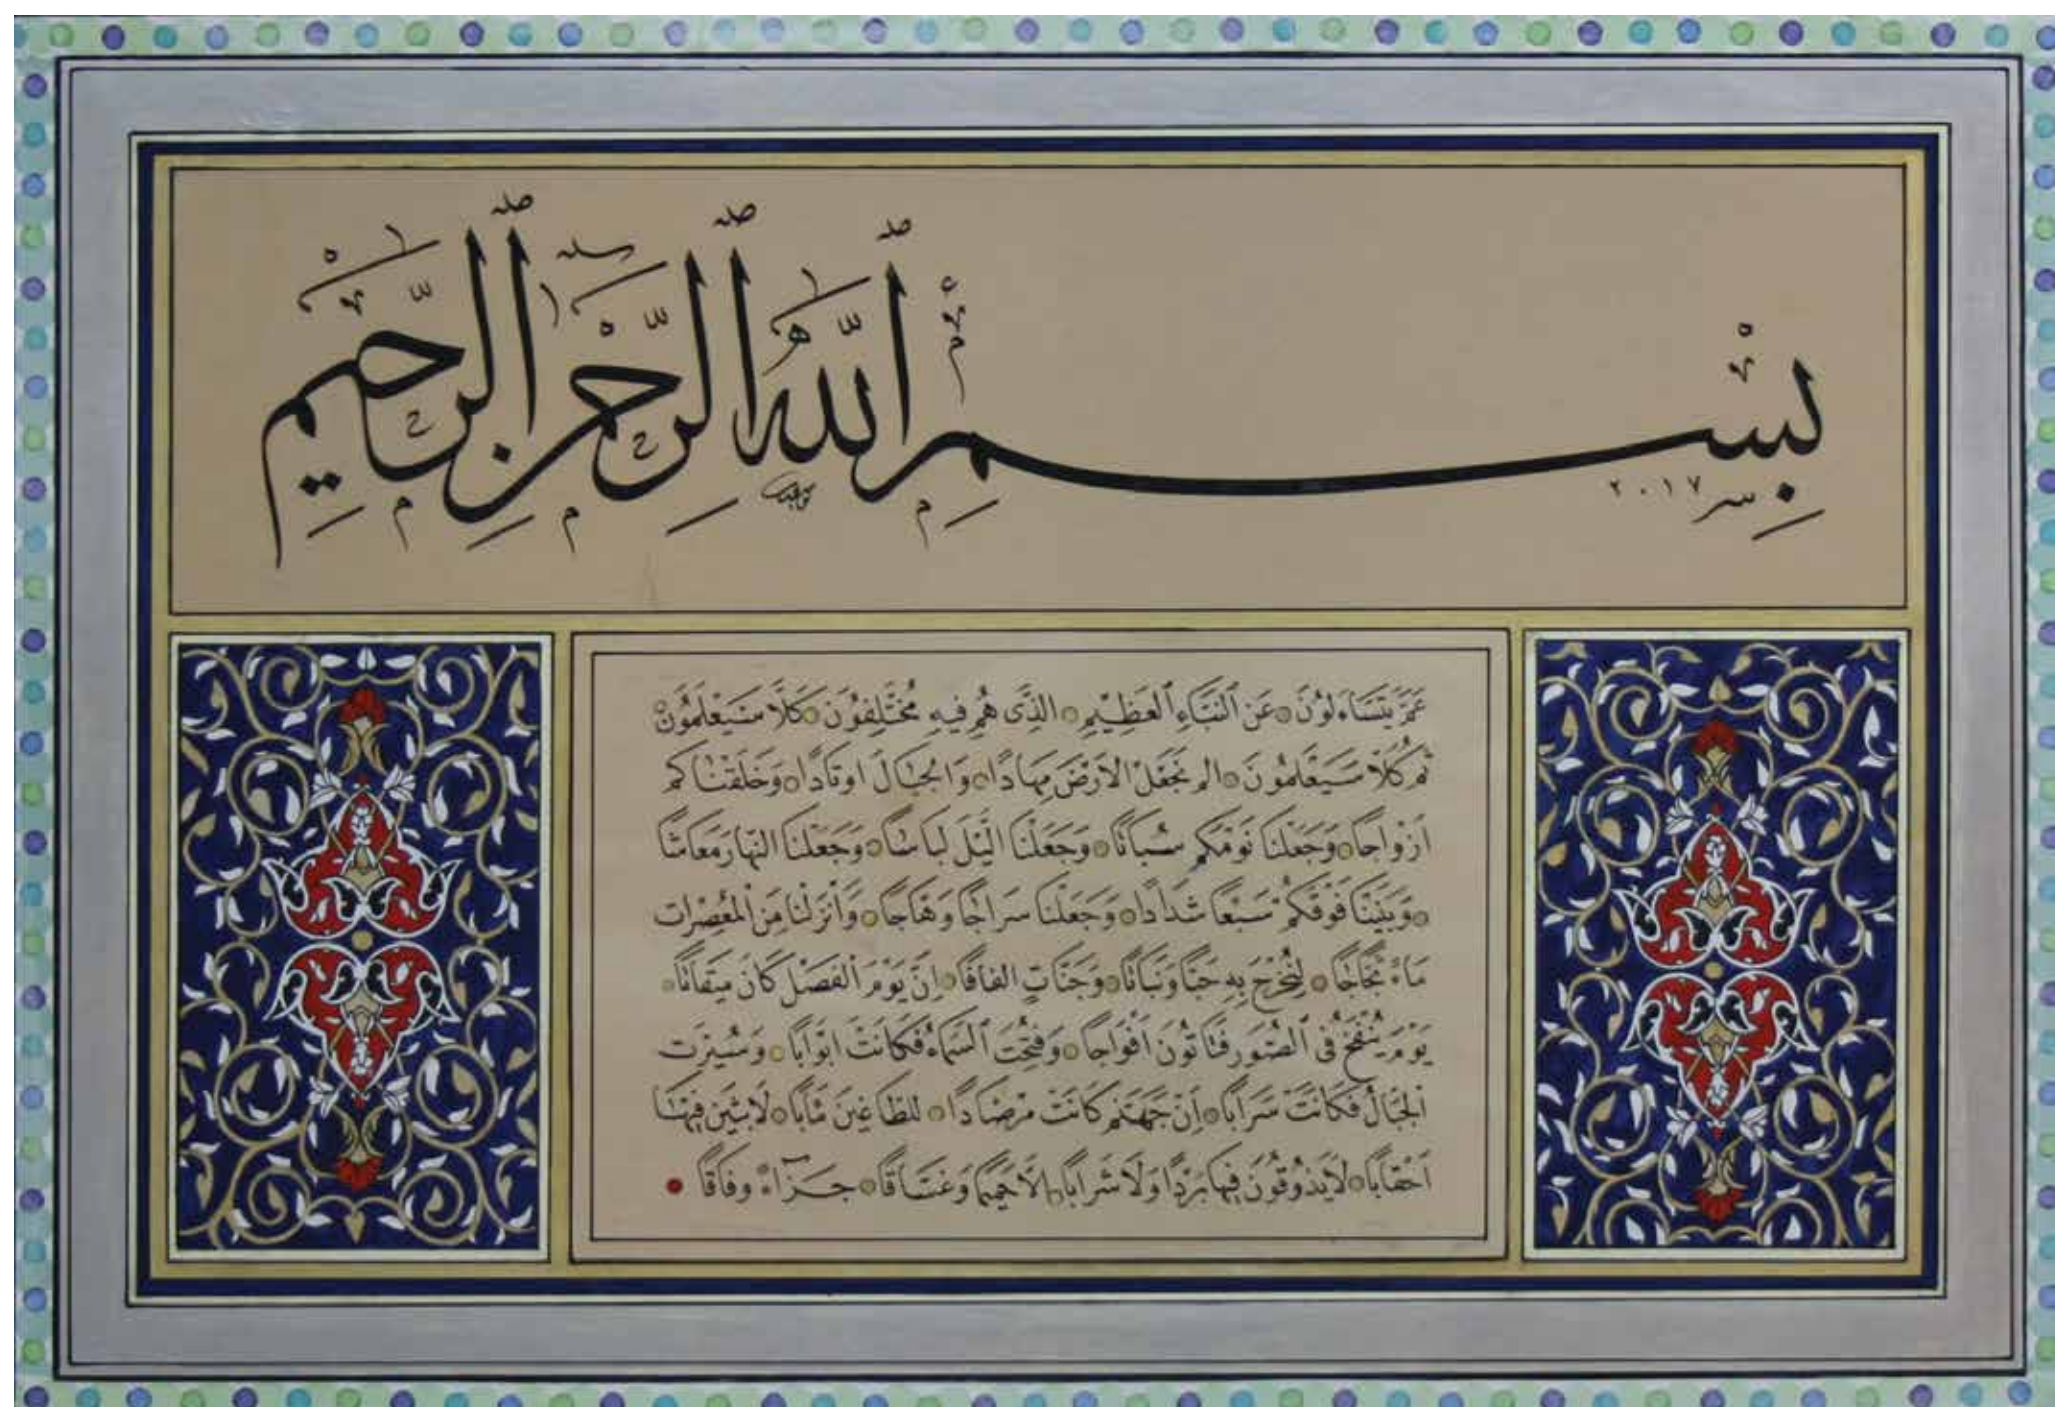 بِسْمِ ٱللَّهِ ٱلرَّحْمَٰنِ ٱلرَّحِيمِ
سنة ٢٠١٧
عَمَّ يَتَسَاءَلُونَ عَنِ ٱلنَّبَاءِ ٱلْعَظِيمِ الَّذِى هُمْ فِيهِ مُخْتَلِفُونَ كَلَّا سَيَعْلَمُونَ
ثم كَلَّا سَيَعْلَمُونَ الم نَجْعَلْ الْاَرْضَ مِهَادًا وَالْجِبَالَ اوتَادًا وَخَلَقْنَاكم
اَزْوَاجًا وَجَعَلْنَا نَوْمَكُم سُبَاتًا وَجَعَلْنَا الَّيْلَ لِبَاسًا وَجَعَلْنَا النَّهَارَ مَعَاشًا
وَبَنَيْنَا فَوْقَكُمْ سَبْعًا شِدَادًا وَجَعَلْنَا سِرَاجًا وَهَّاجًا وَاَنْزَلْنَا مِنَ الْمُعْصِرَاتِ
مَاءً ثَجَّاجًا لِنُخْرِجَ بِهِ حَبًّا وَنَبَاتًا وَجَنَّاتٍ الْفَافًا اِنَّ يَوْمَ الْفَصْلِ كَانَ مِيقَاتًا
يَوْمَ يُنْفَخُ فِى ٱلصُّورِ فَتَاتُونَ اَفْوَاجًا وَفُتِحَتِ ٱلسَّمَاءُ فَكَانَتْ ابْوَابًا وَسُيِّرَتِ
الْجِبَالُ فَكَانَتْ سَرَابًا اِنَّ جَهَنَّمَ كَانَتْ مِرْصَادًا للطَّاغِينَ مَآبًا لَابِثِينَ فِيهَا
اَحْقَابًا لَايَذُوقُونَ فِيهَا بَرْدًا وَلَا شَرَابًا اِلَّا حَمِيمًا وَغَسَّاقًا جَزَآءً وِفَاقًا